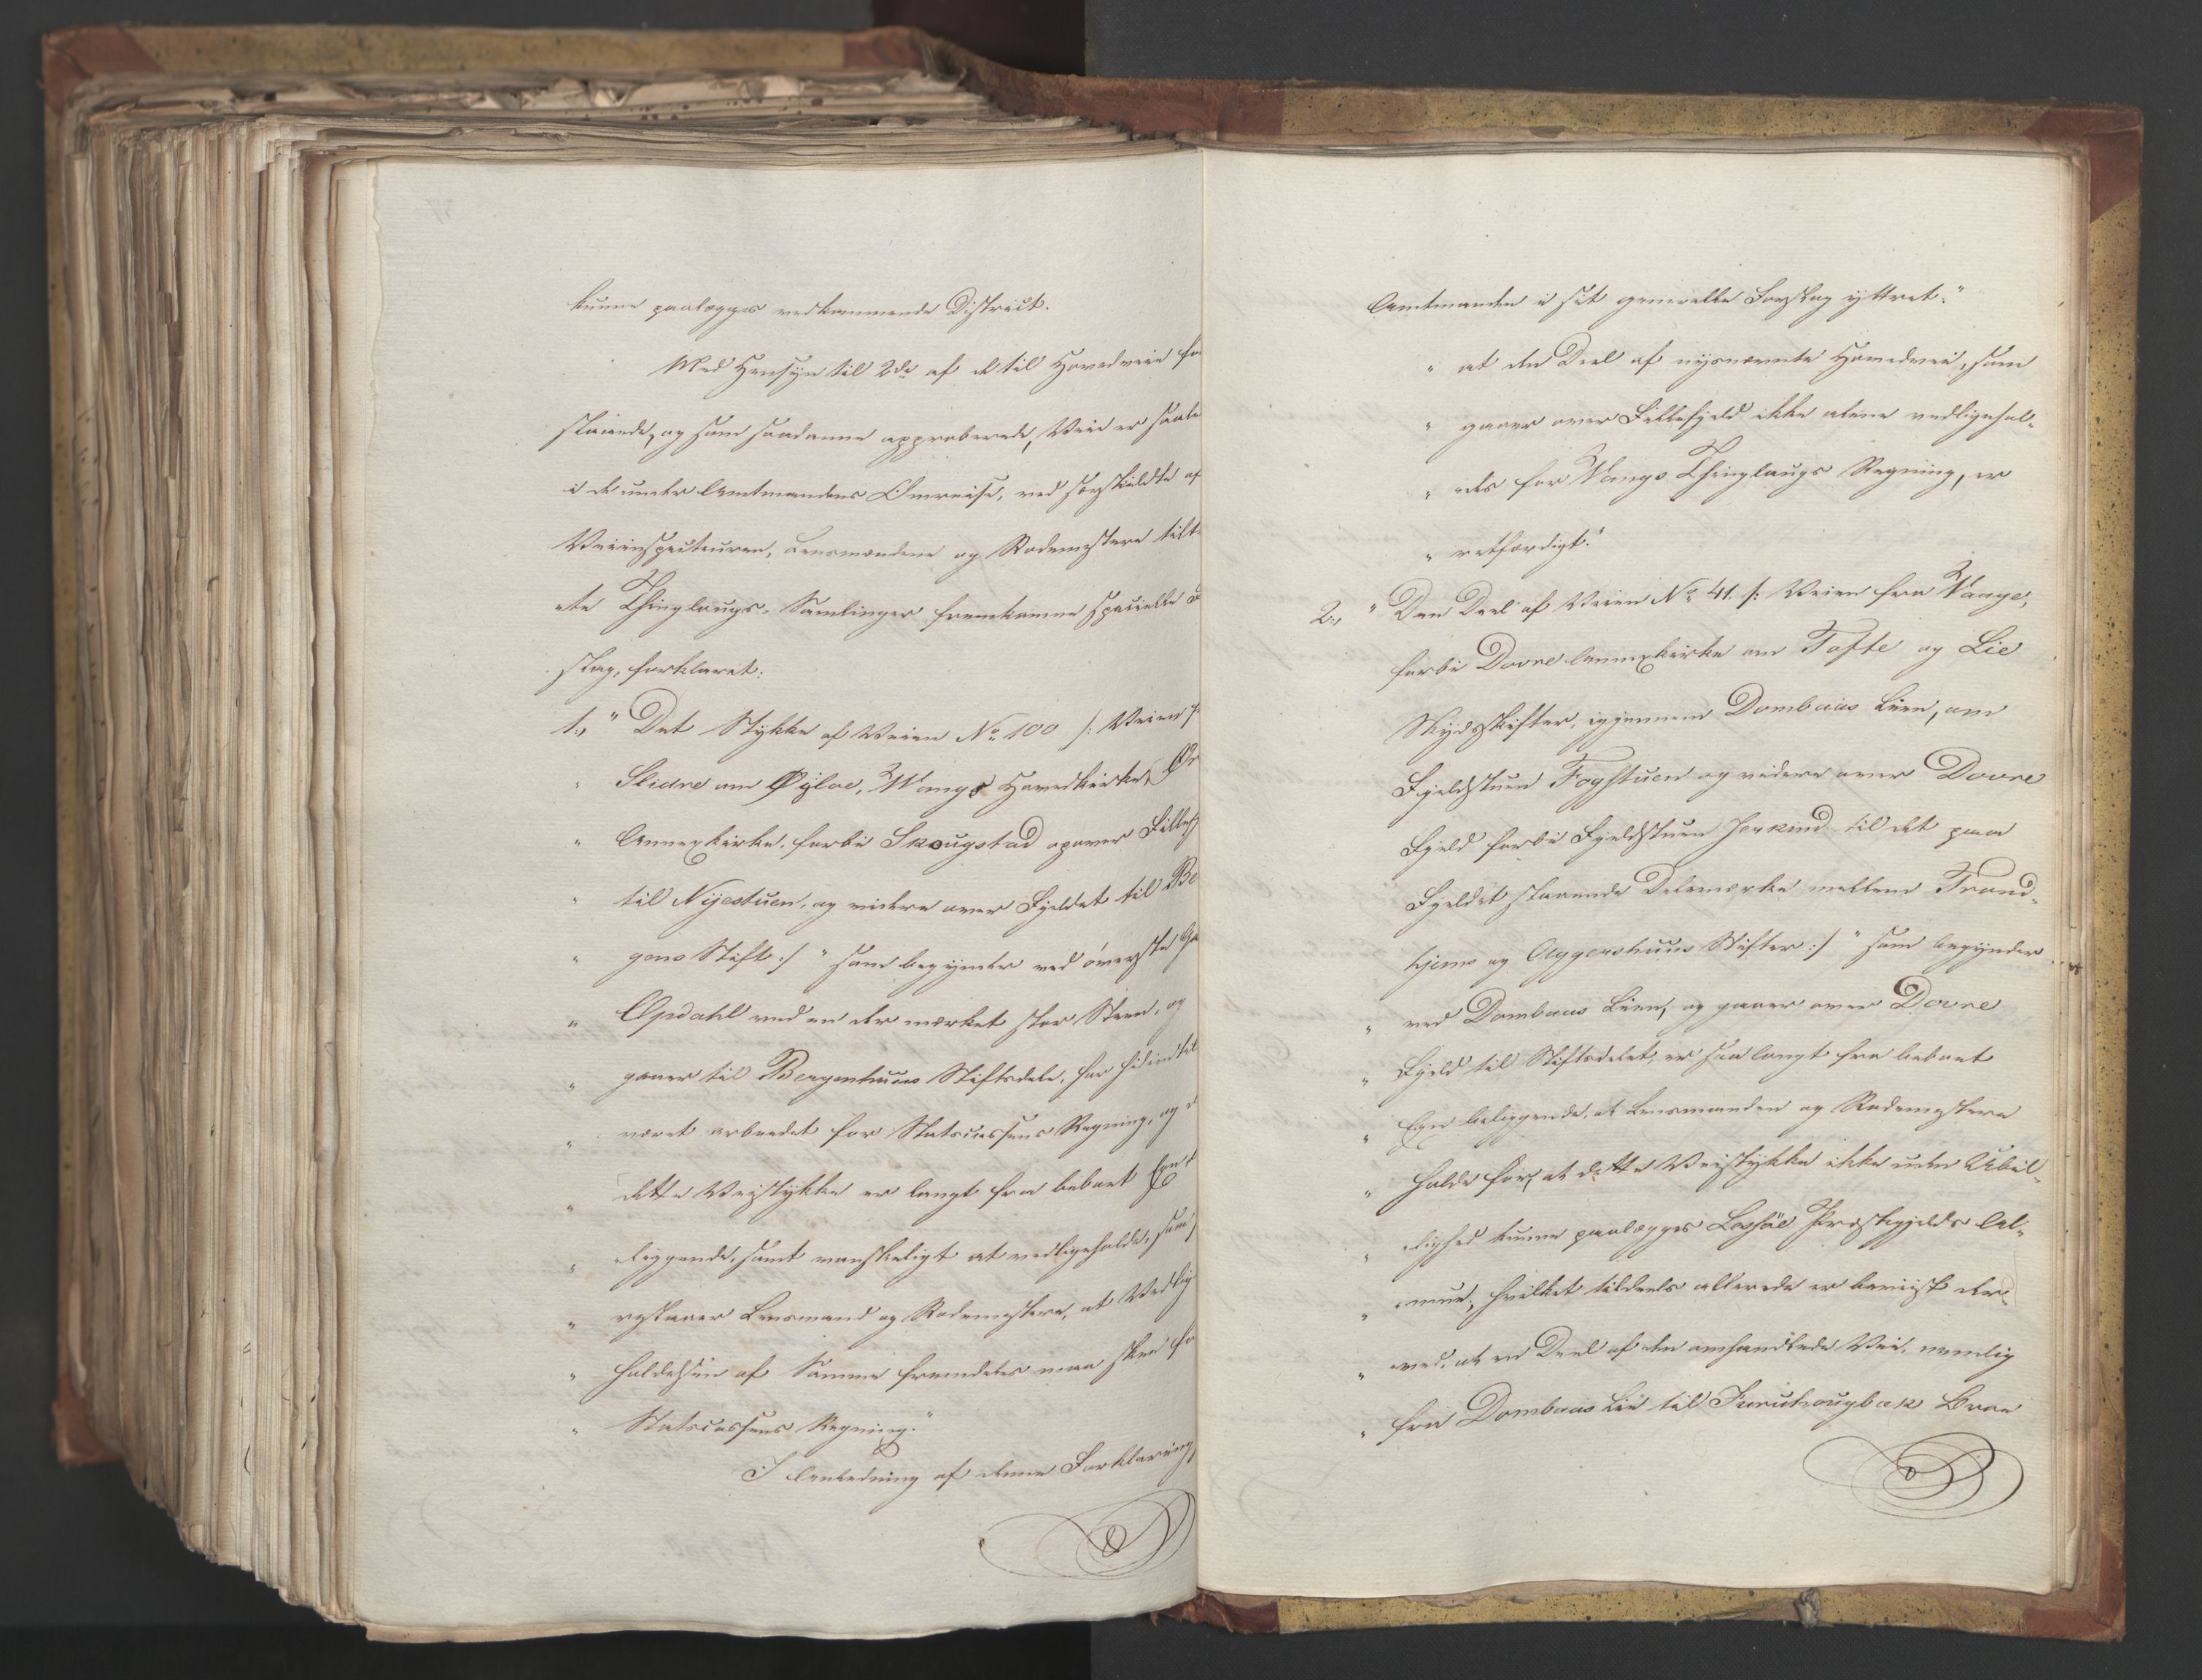 kunne paalægges vedkommende District.
Med Hensyn til 2de af de til Hovedveie fo
slaaede, og som saadanne approberede, Veie er saale
i de under Amtmandens Omreise, ved særskildte af
Veiinspecteuren, Lensmændene og Rodemestere tilt
ate Thinglaugs-Samlinger fremkomne specielle
slag, forklaret:
1., " Det Stykke af Veien No 100 /: Veien
" Slidre om Øyloe, Wangs Hovedkirke,
" Annexkirke, forbi Skougstad opover Fillefj
" til Nÿestuen, og videre over Fjeldet til Be
" gens Stift :/ " som begynder ved øverste
" Opdahl ved en der mærket stor Steen, og
" gaaer til Bergenhuus Stiftsdele, har hidindtil
" været arbeidet for Statscassens Regning, og
" dette Veistykke er langt fra beboet Egn
" liggende, samt vanskeligt at vedligeholde,
" Lensmand og Rodemestere, at Vedlig
" holdelsen af Samme fremdeles maa skee fo
" Statscassens Regning."
I Anledning af denne Forklaring
Amtmanden i sit generelle Forslag yttret:"
" at den Deel af nysnævnte Hovedvei, som
" gaaer over Fillefjeld ikke alene vedligehol-
" des for Wangs Thinglaugs Regning, er
" retfærdigt."
2., " Den Deel af Veien No 41. /: Veien fra Waage,
forbi Dovre Annexkirke om Tofte og Lie
Skydsskifter, igjennem Dombaas Lien, om
Fjeldstuen Fogstuen og videre over Dovre
Fjeld forbi Fjeldstuen Jerkind til det paa
Fjeldet staaende Delemærke mellem Trond-
hjems og Aggershuus Stifter :/ " som begynder
" ved Dombaas Lien, og gaaer over Dovre
" Fjeld til Stiftsdelet, er saa langt fra beboet
" Egn beliggende, at Lensmanden og Rodemestere
" holde for, at dette Veistykke ikke uden Ubil-
" lighed kunne paalægges Lessøe Præstegjelds Al-
" mue, hvilket tildeels allerede er beviist der-
" ved, at en Deel af den omhandlede Vei, nemlig
" fra Dombaas Lie til Furuhougbak Broe